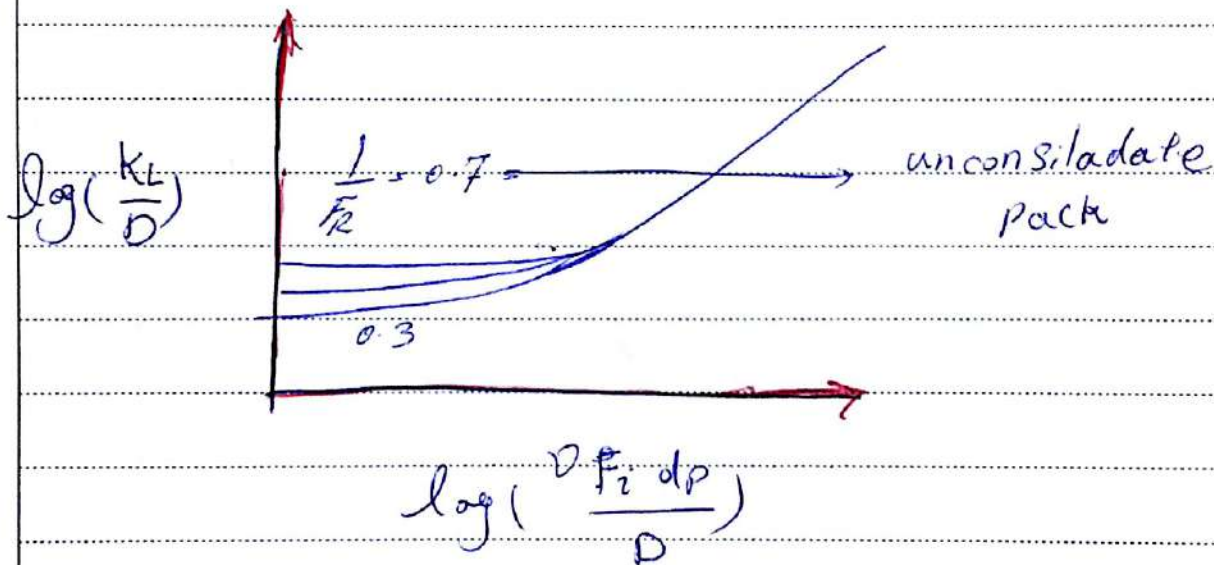 log(K_L/D)
1/F_R = 0.7 = unconsiladate
pack
0.3
log(υ F_i dp/D)